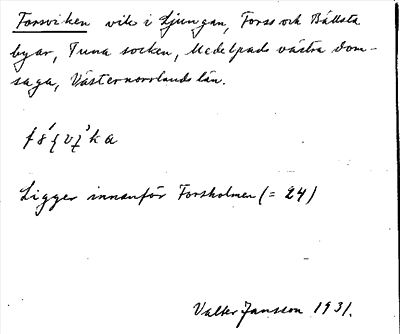 Forsviken vik i Ljungan, Forss och Bällsta
byar, Tuna socken, Medelpads västra dom-
saga, Västernorrlands län.
Ligger innanför Forsholmen (= 24)
Valter Jansson 1931.